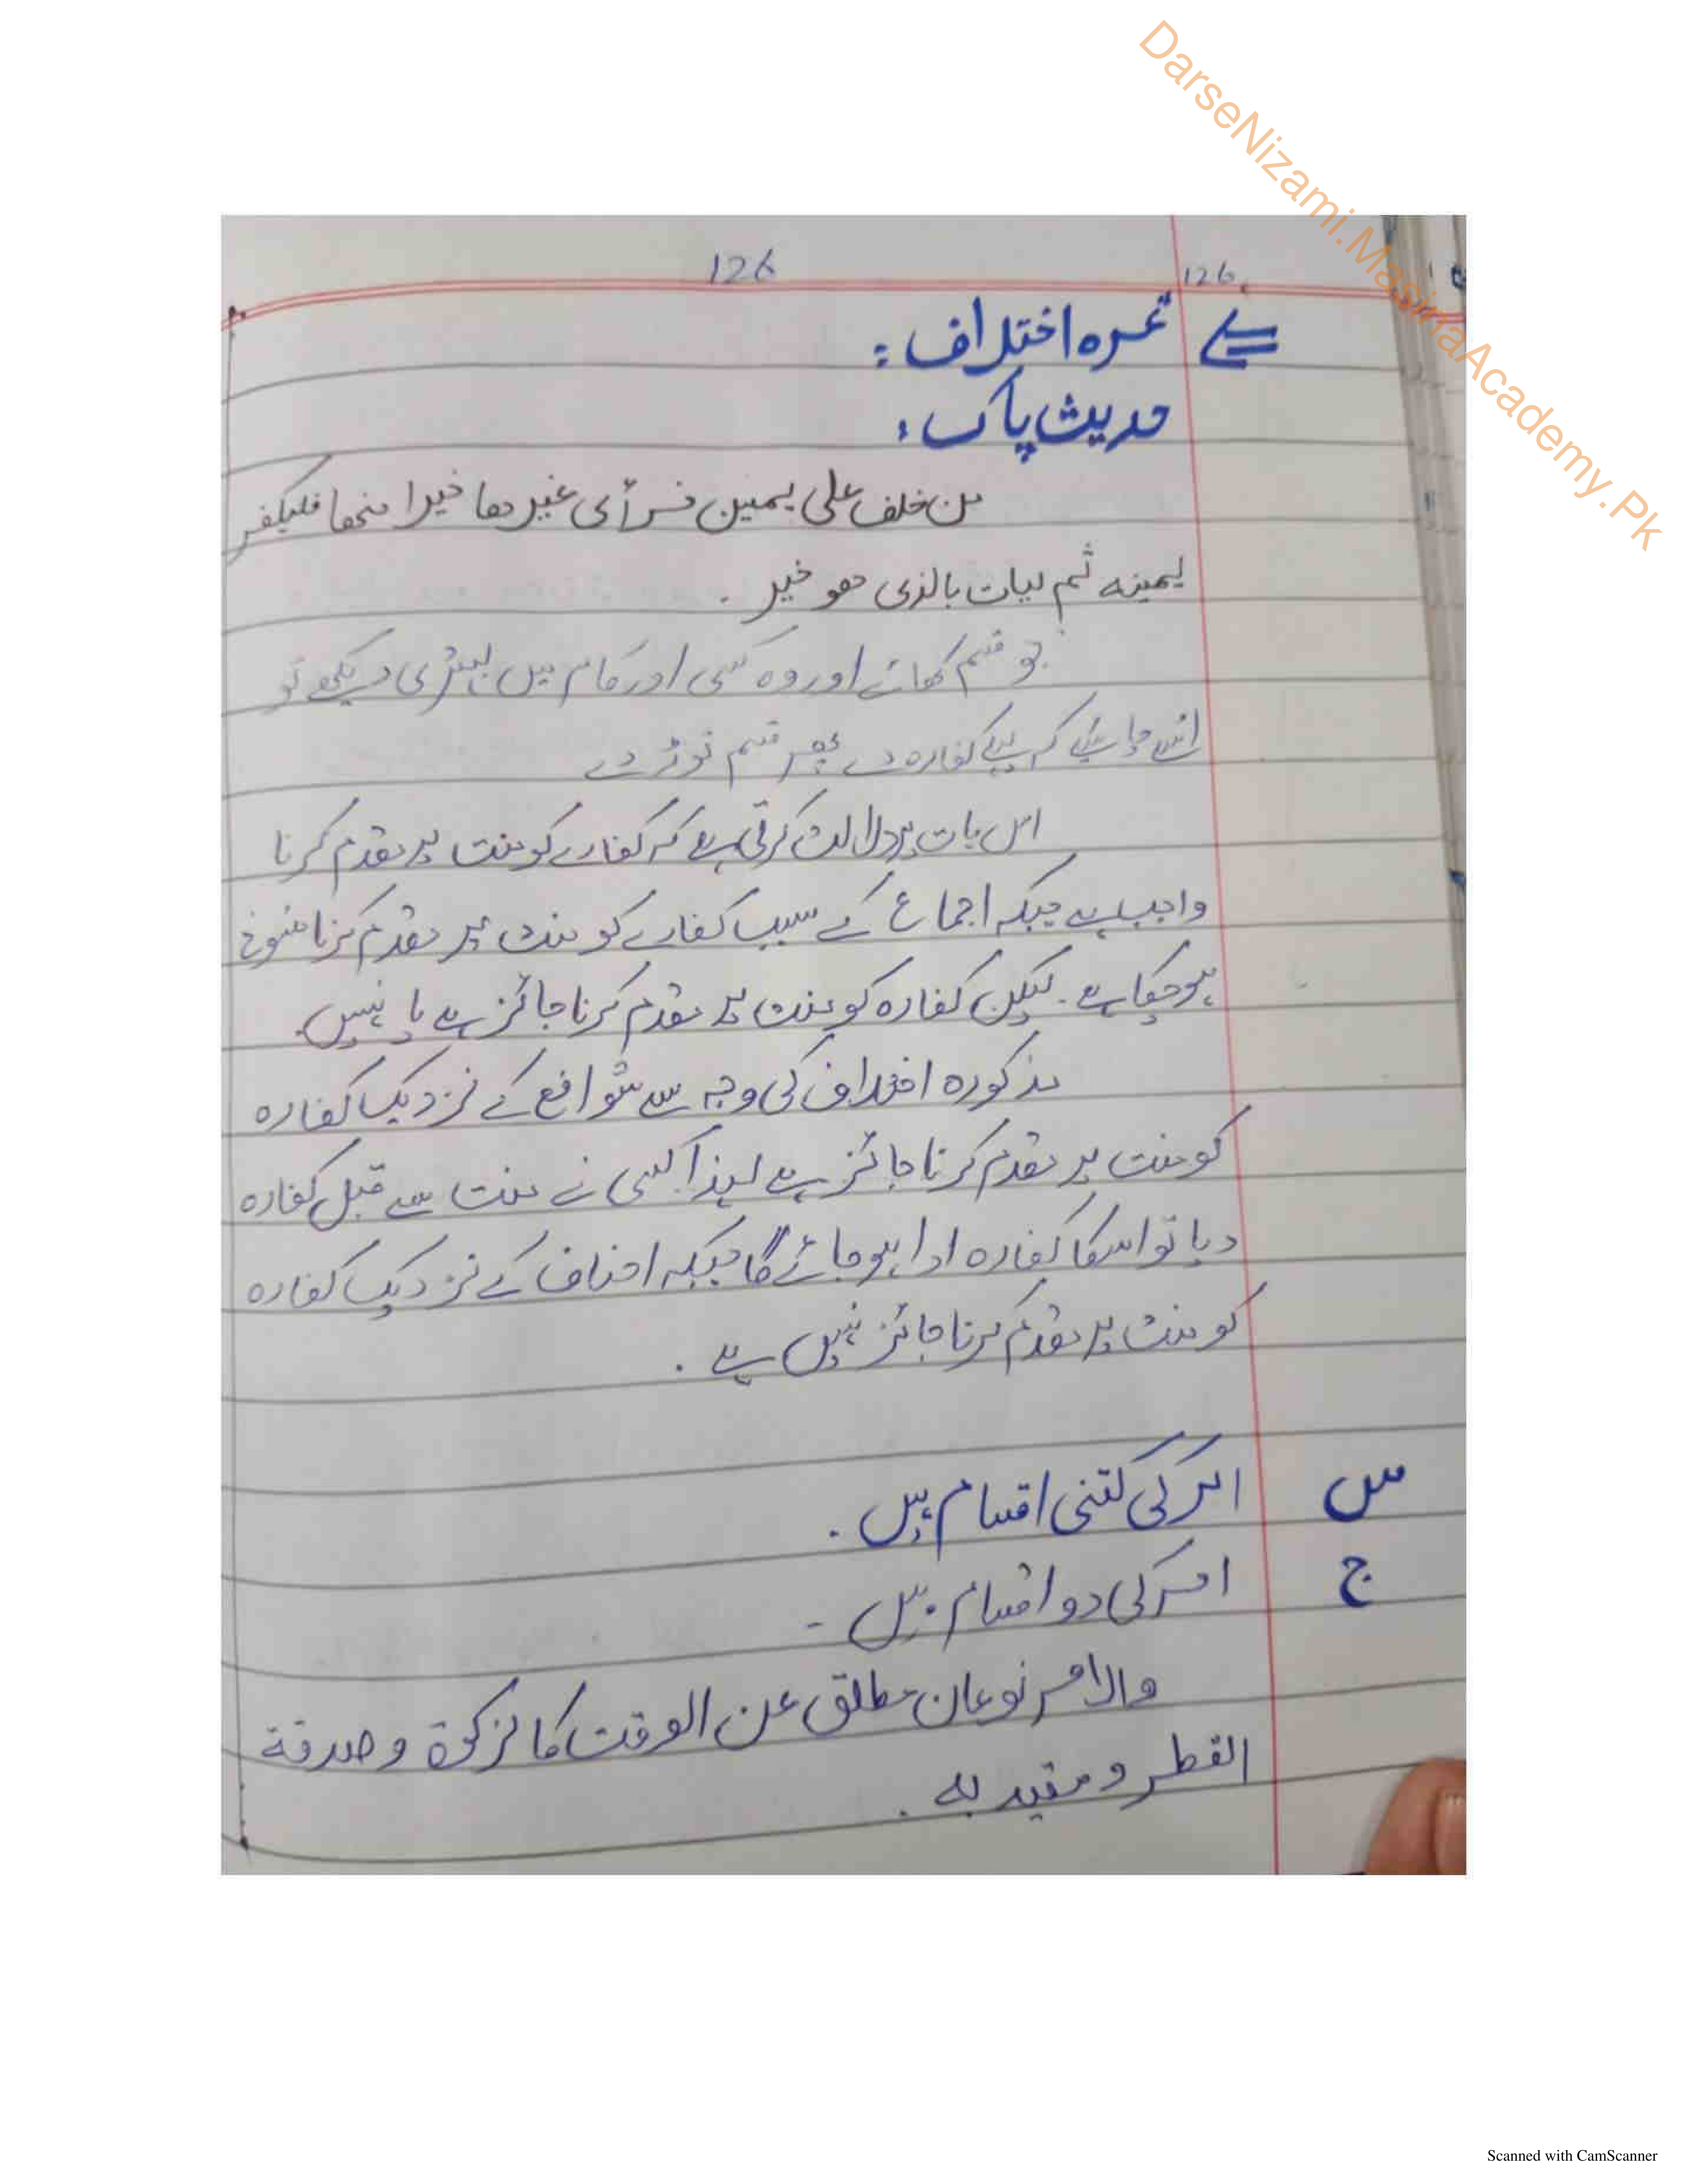 DarseNizami.MasinaAcademy.Pk
126
126
ثمرہ اختلاف :
حدیث پاک :
من خلف علی یمین فرأی غیرھا خیرا منھا فلیکفر
یمینہ ثم لیات بالذی ھو خیر .
جو قسم کھائے اور وہ کسی اور کام میں بہتری دیکھے تو
اُسے چاہیئے کہ پہلے کفارہ دے پھر قسم توڑ دے
اس بات پر دلالت کرتی ہے کہ کفارے کو حنث پر مقدم کرنا
واجب ہے جبکہ اجماع کے سبب کفارے کو حنث پر مقدم کرنا منسوخ
ہو چکا ہے . لیکن کفارہ کو حنث پر مقدم کرنا جائز ہے یا نہیں .
مذکورہ اختلاف کی وجہ سے شوافع کے نزدیک کفارہ
کو حنث پر مقدم کرنا جائز ہے لہذا کسی نے حنث سے قبل کفارہ
دیا تو اسکا کفارہ ادا ہو جائے گا جبکہ احناف کے نزدیک کفارہ
کو حنث پر مقدم کرنا جائز نہیں ہے .
س امر کی کتنی اقسام ہیں .
ج امر کی دو اقسام ہیں -
والامر نوعان مطلق عن الوقت کالزکوۃ و صدقة
الفطر و مقید بہ .
Scanned with CamScanner